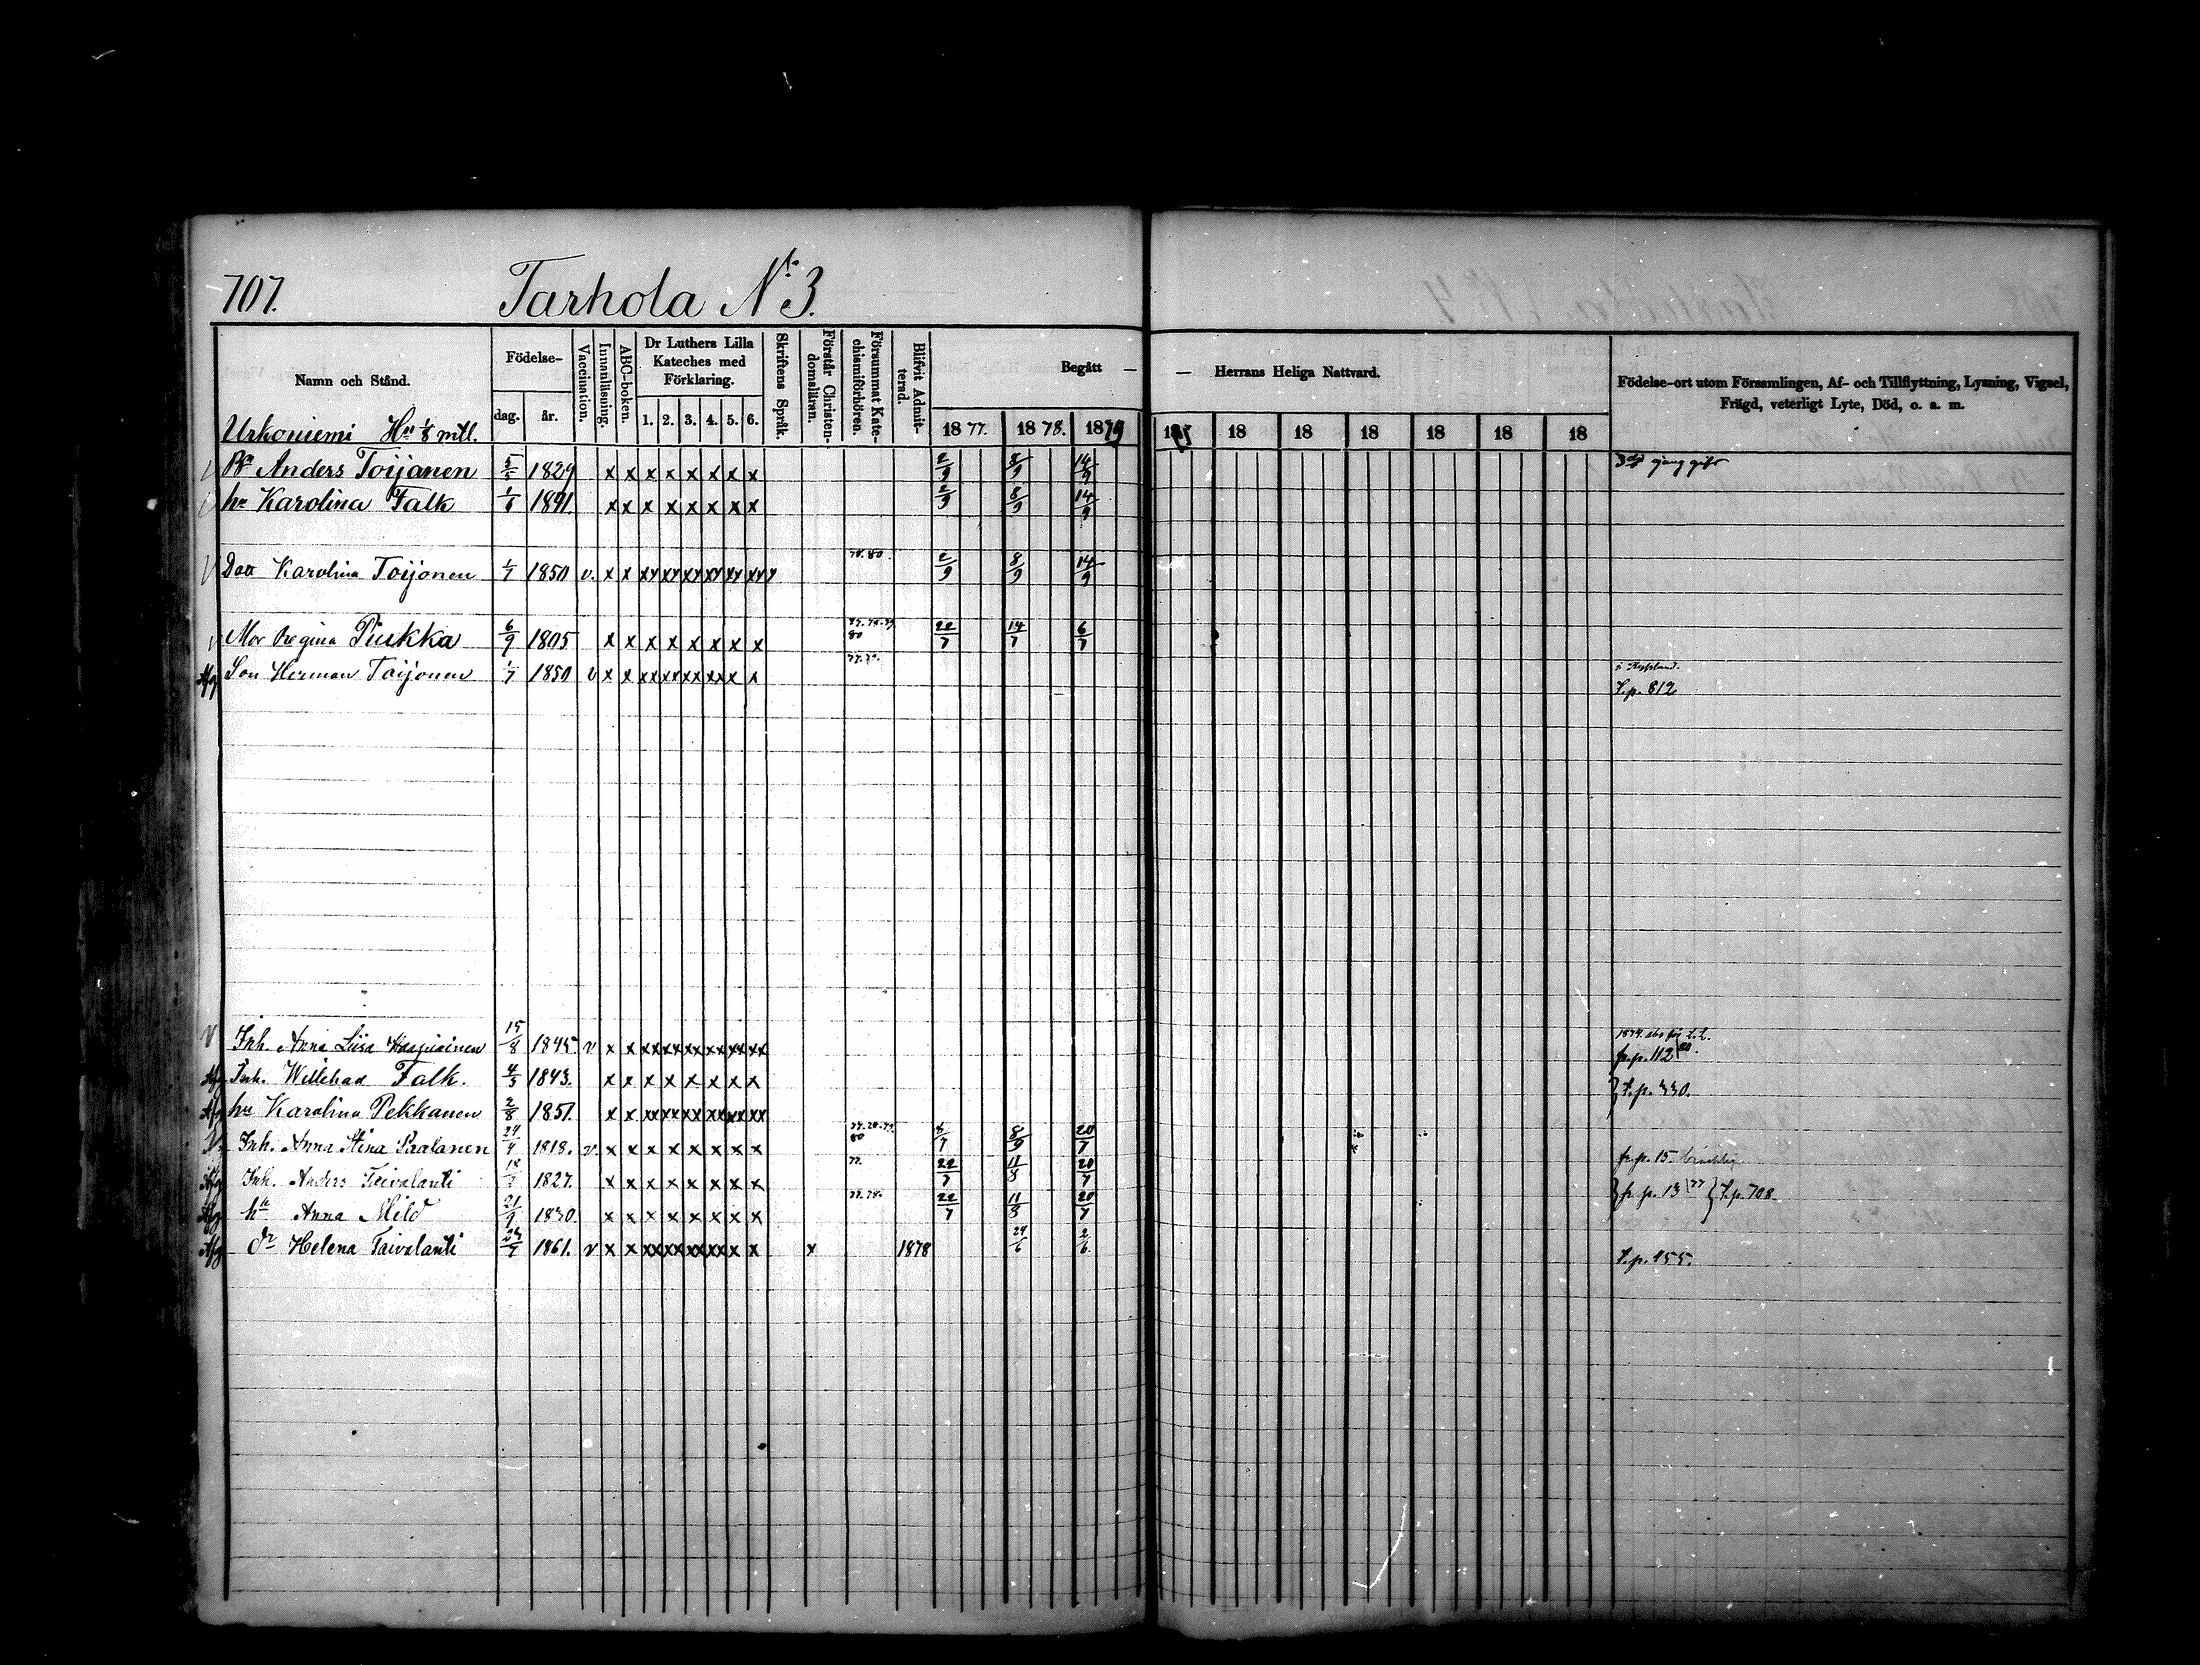 707. Tarhola N:o 3.
Namn och Stånd.
Födelse-
dag. år.
Vaccination.
Innanläsning.
ABC-boken.
Dr Luthers Lilla
Kateches med
Förklaring.
1. 2. 3. 4. 5. 6.
Skriftens Språk.
Förstår Christen-
domsläran.
Försummat Kate-
chismiförhören.
Blifvit Admit-
terad.
Begått — — Herrans Heliga Nattvard.
1877. 1878. 1879 18 18 18 18 18 18 18
Födelse-ort utom Församlingen, Af- och Tillflyttning, Lysning, Vigsel,
Frägd, veterligt Lyte, Död, o. a. m.
Urkoniemi Hn 1/8 mtl.
Anders Toijanen 1829 x x x x x x x x 2/9 8/9 14/9
hu Karolina Falk x x x x x x x x 2/9 8/9 14/9
Karolina Toijonen 1/7 1850 v. x x xx xx xx xx xx xx 2/9 8/9 14/9
Mor Regina Puikka 6/9 1805 x x x x x x x x 80 22/7 14/7 6/7
Afg Son Herman Toijonen 1/7 1850 v x x xx xx xx xx x x i Ryssland.
t.p. 812
V Inh. Anna Liisa 15/8 1845 v x x xx xx xx xx xx xx
fr.p. 112
Afg Inh. Willehad Falk. 4/3 1843. x x x x x x x x t.p. 330.
Afg hu Karolina Pekkanen 2/8 1851. x x xx xx xx xx xx xx
Inh. Anna Stina Paalanen 24/4 1818. v x x x x x x x x 80 8/9 20/7 fr.p. 15.
Afg Inh. Anders Taivalanti 1827. x x x x x x x x 77. 22/7 11/8 20/7 fr.p. 13 77 t.p. 708.
Afg hu Anna Mild 21/9 1830. x x x x x x x x 77.78. 22/7 11/8 20/7
Afg dr Helena Taivalanti 1861. v x x xx xx xx xx x x x 1878 24/6 2/6 t.p. 155.